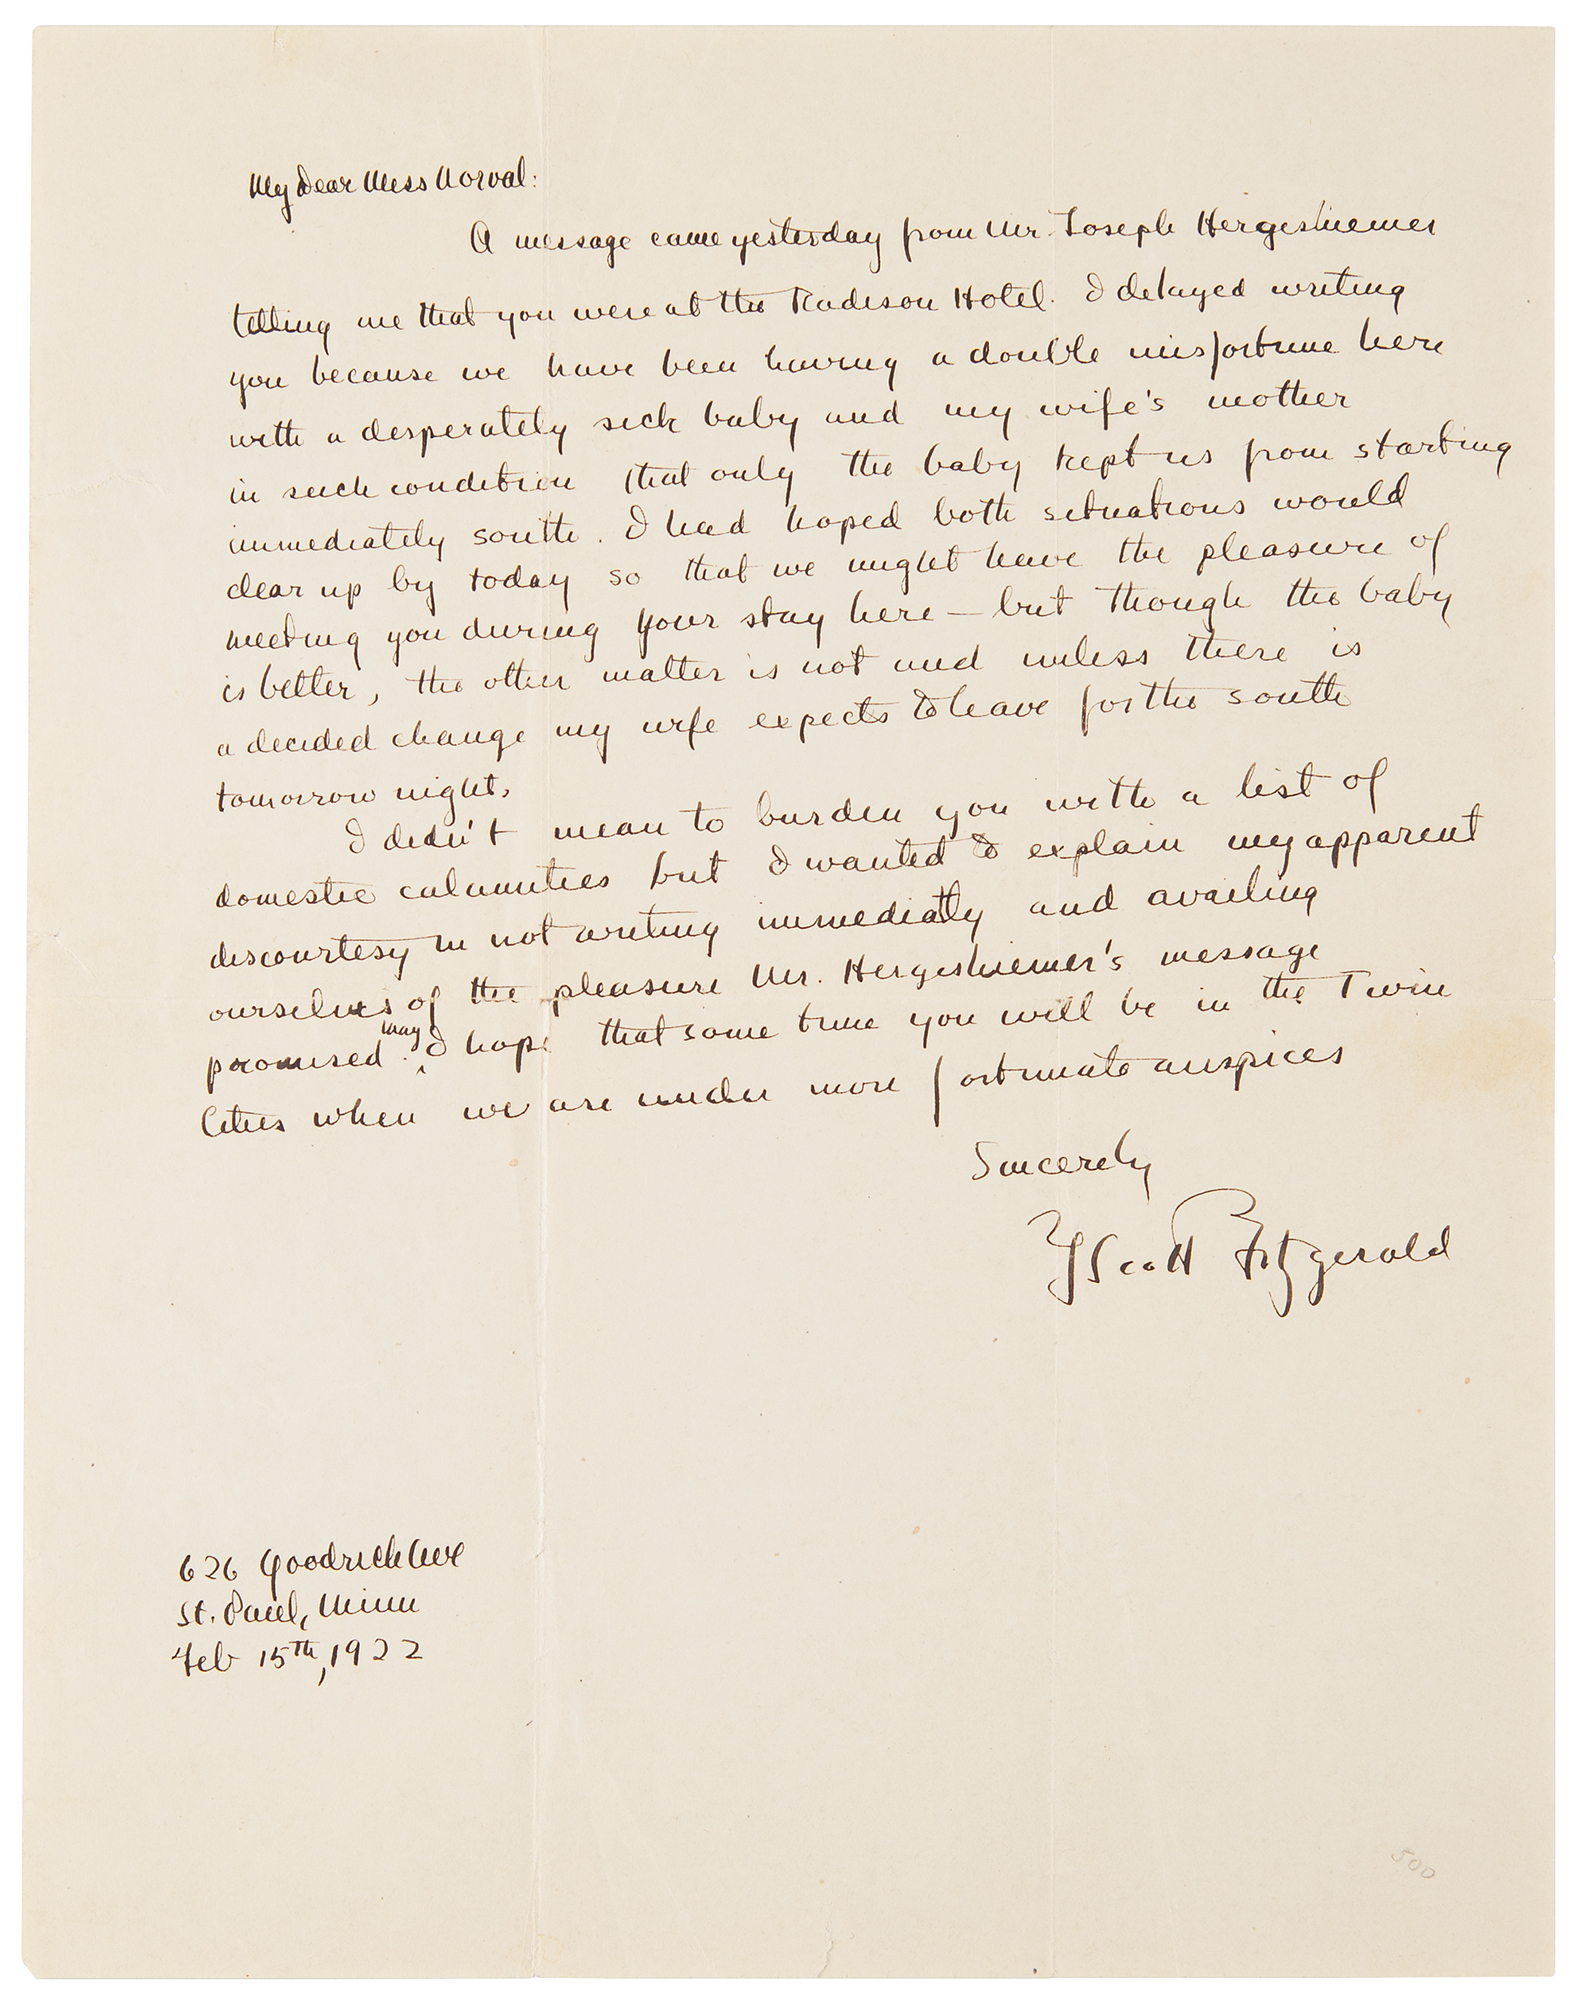 My Dear Miss Norval:
A message came yesterday from Mr. Joseph Hergeshiemer
telling me that you were at the Radison Hotel. I delayed writing
you because we have been having a double misfortune here
with a desperately sick baby and my wife's mother
in such condition that only the baby kept us from starting
immediately south. I had hoped both situations would
clear up by today so that we might have the pleasure of
meeting you during your stay here — but though the baby
is better, the other matter is not and unless there is
a decided change my wife expects to leave for the south
tomorrow night.
I didn't mean to burden you with a list of
domestic calamities but I wanted to explain my apparent
discourtesy in not writing immediatly and availing
ourselves of the pleasure Mr. Hergeshiemer's message
promised. May I hope that some time you will be in the Twin
Cities when we are under more fortunate auspices
Sincerely
F Scott Fitzgerald
626 Goodrich Ave
St. Paul, Minn
Feb 15th, 1922
500